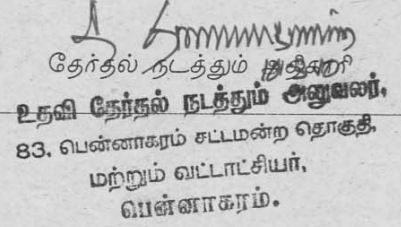 தேர்தல் நடத்தும்
உதவி தேர்தல் நடத்தும் அனுவலர்,
83. பென்னாகரம் சட்டமன்ற தொகுதி,
மற்றும் வட்டாட்சியர்,
பென்னாகரம்.